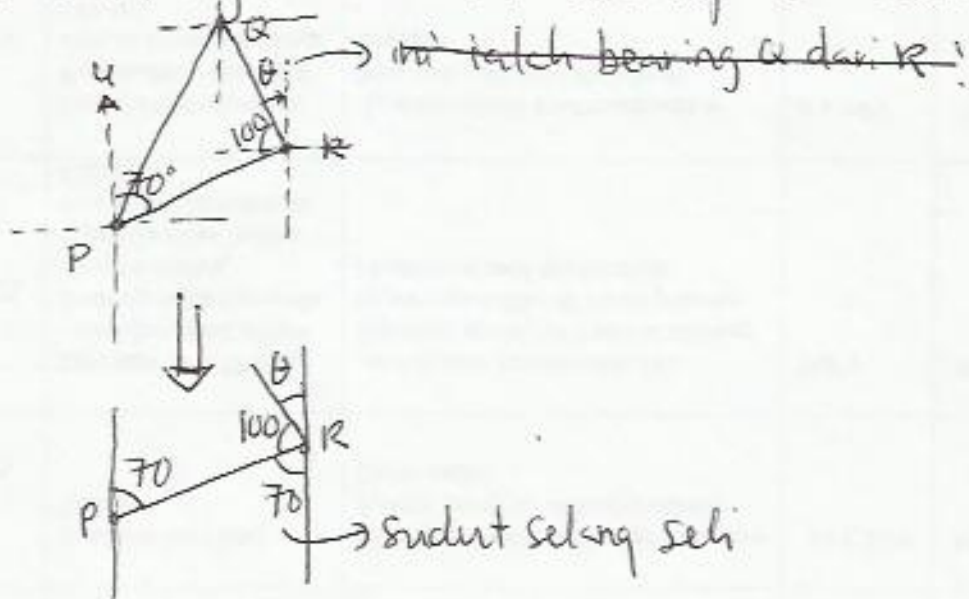 Q
→ ini ialah bearing Q dari R!
θ
U
100
R
70°
P
θ
100 R
70
P
70
→ sudut selang seli